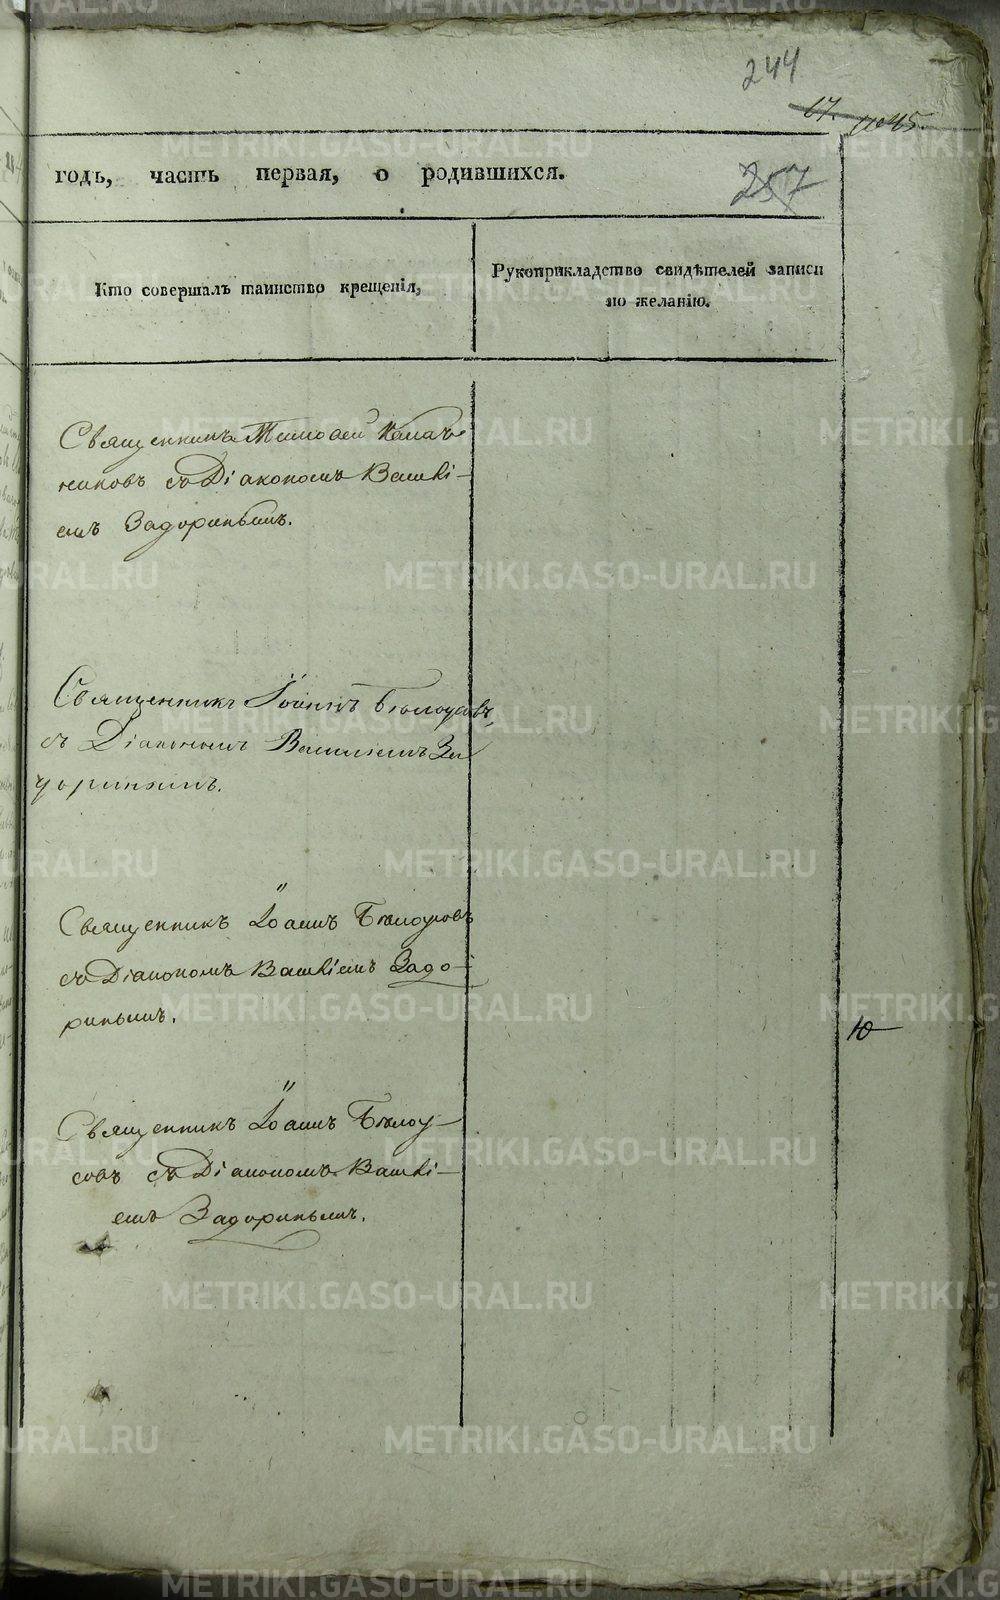 244
17.
257
годъ, часть первая, о родившихся.
Кто совершалъ таинство крещенія,
Рукоприкладство свидѣтелей записи
по желанію.
Священникъ Тимофей Калаш-
никовъ съ Діакономъ Василі-
емъ Задоринымъ.
Священникъ Іоаннъ Бѣлоусовъ,
съ Діакономъ Василіемъ За
доринымъ.
Священникъ Іоаннъ Бѣлоусовъ
съ Діакономъ Василіемъ Задо-
ринымъ.
Ю
Священникъ Іоаннъ Бѣлоу-
совъ съ Діакономъ Василі-
емъ Задоринымъ.
METRIKI.GASO-URAL.RU